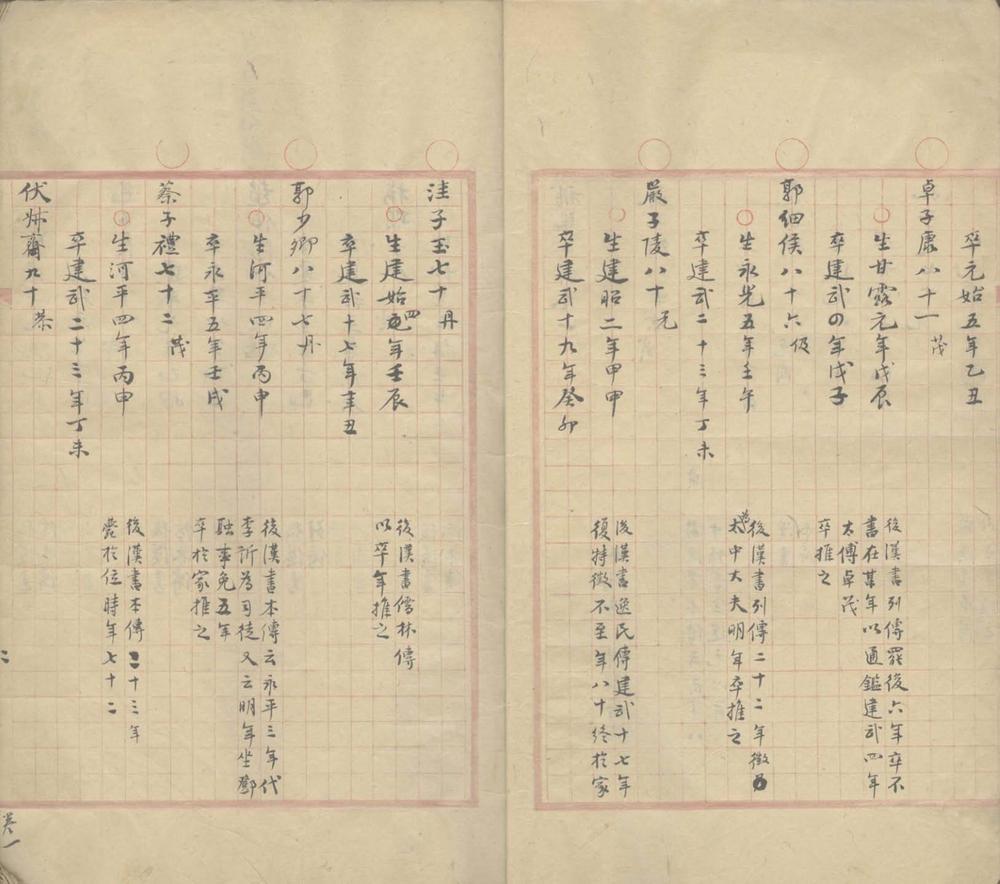 卒元始五年乙丑
卓子康八十一茂
生甘露元年戊辰
卒建武四年戊子
後漢書列傳罷後六年卒不
書在某年以通鑑建武四年
太傅卓茂
卒推之
郭細侯八十六伋
生永光五年壬午
卒建武二十三年丁未
後漢書列傳二十二年徵為
太中大夫明年卒推之
嚴子陵八十元
生建昭二年甲申
卒建武十九年癸卯
後漢書逸民傳建武十七年
復特徵不至年八十終於家
洼子玉七十丹
生建始四年壬辰
卒建武十七年辛丑
後漢書儒林傳
以卒年推之
郭少卿八十七丹
生河平四年丙申
卒永平五年壬戌
後漢書本傳云永平三年代
李訢為司徒又云明年坐鄧
融事免五年
卒於家推之
蔡子禮七十二茂
生河平四年丙申
卒建武二十三年丁未
後漢書本傳二十三年
薨於位時年七十二
伏叔齋九十恭
卷一
二